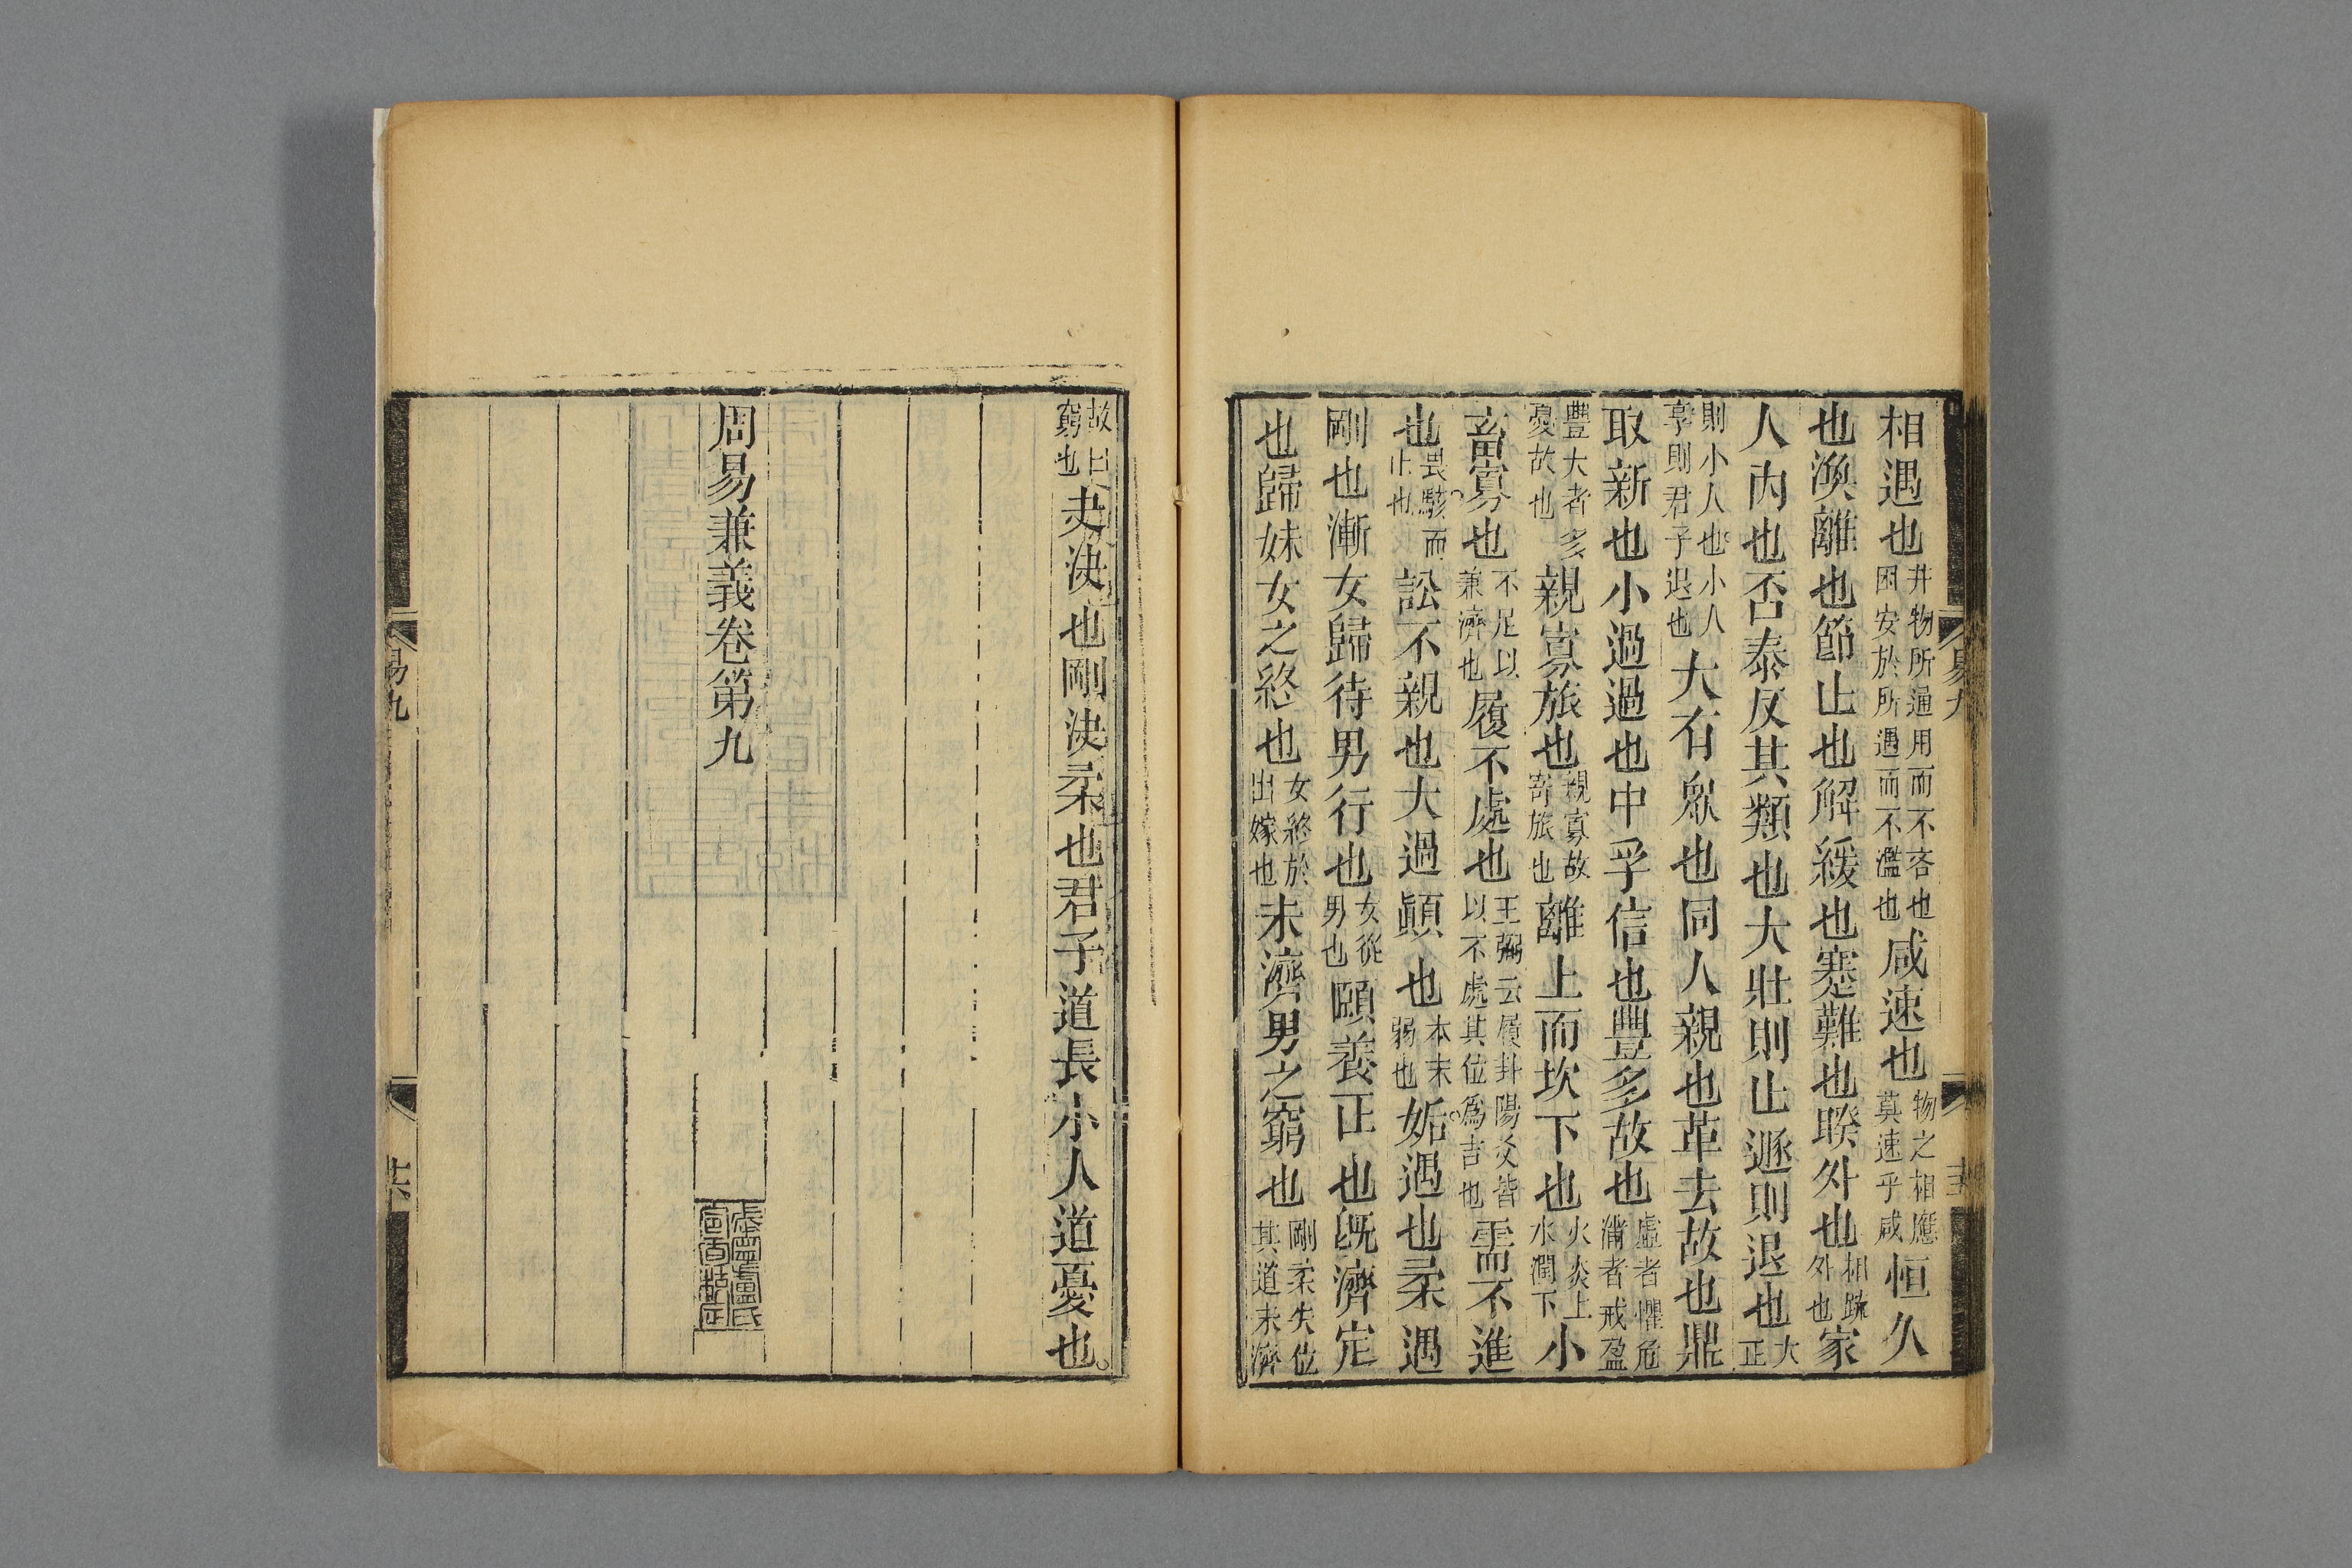 相遇也井物所通用而不吝也困安於所遇而不濫也咸速也物之相應莫速乎咸恒久
也渙離也節止也解緩也蹇難也睽外也相疏外也家
人內也否泰反其類也大壯則止遯則退也大正
則小人也小人亨則君子退也大有衆也同人親也革去故也鼎
取新也小過過也中孚信也豐多故也虛者懼危滿者戒盈
豐大者多憂故也親寡旅也親寡故寄旅也離上而坎下也火炎上水潤下小
畜寡也不足以兼濟也履不處也王弼云履卦陽爻皆以不處其位爲吉也需不進
也畏駭而止也訟不親也大過顚也本末弱也姤遇也柔遇
剛也漸女歸待男行也女從男也頤養正也旣濟定
也歸妹女之終也女終於出嫁也未濟男之窮也剛柔失位其道未濟
易九
故曰窮也夬決也剛決柔也君子道長小人道憂也
周易兼義卷第九
易九